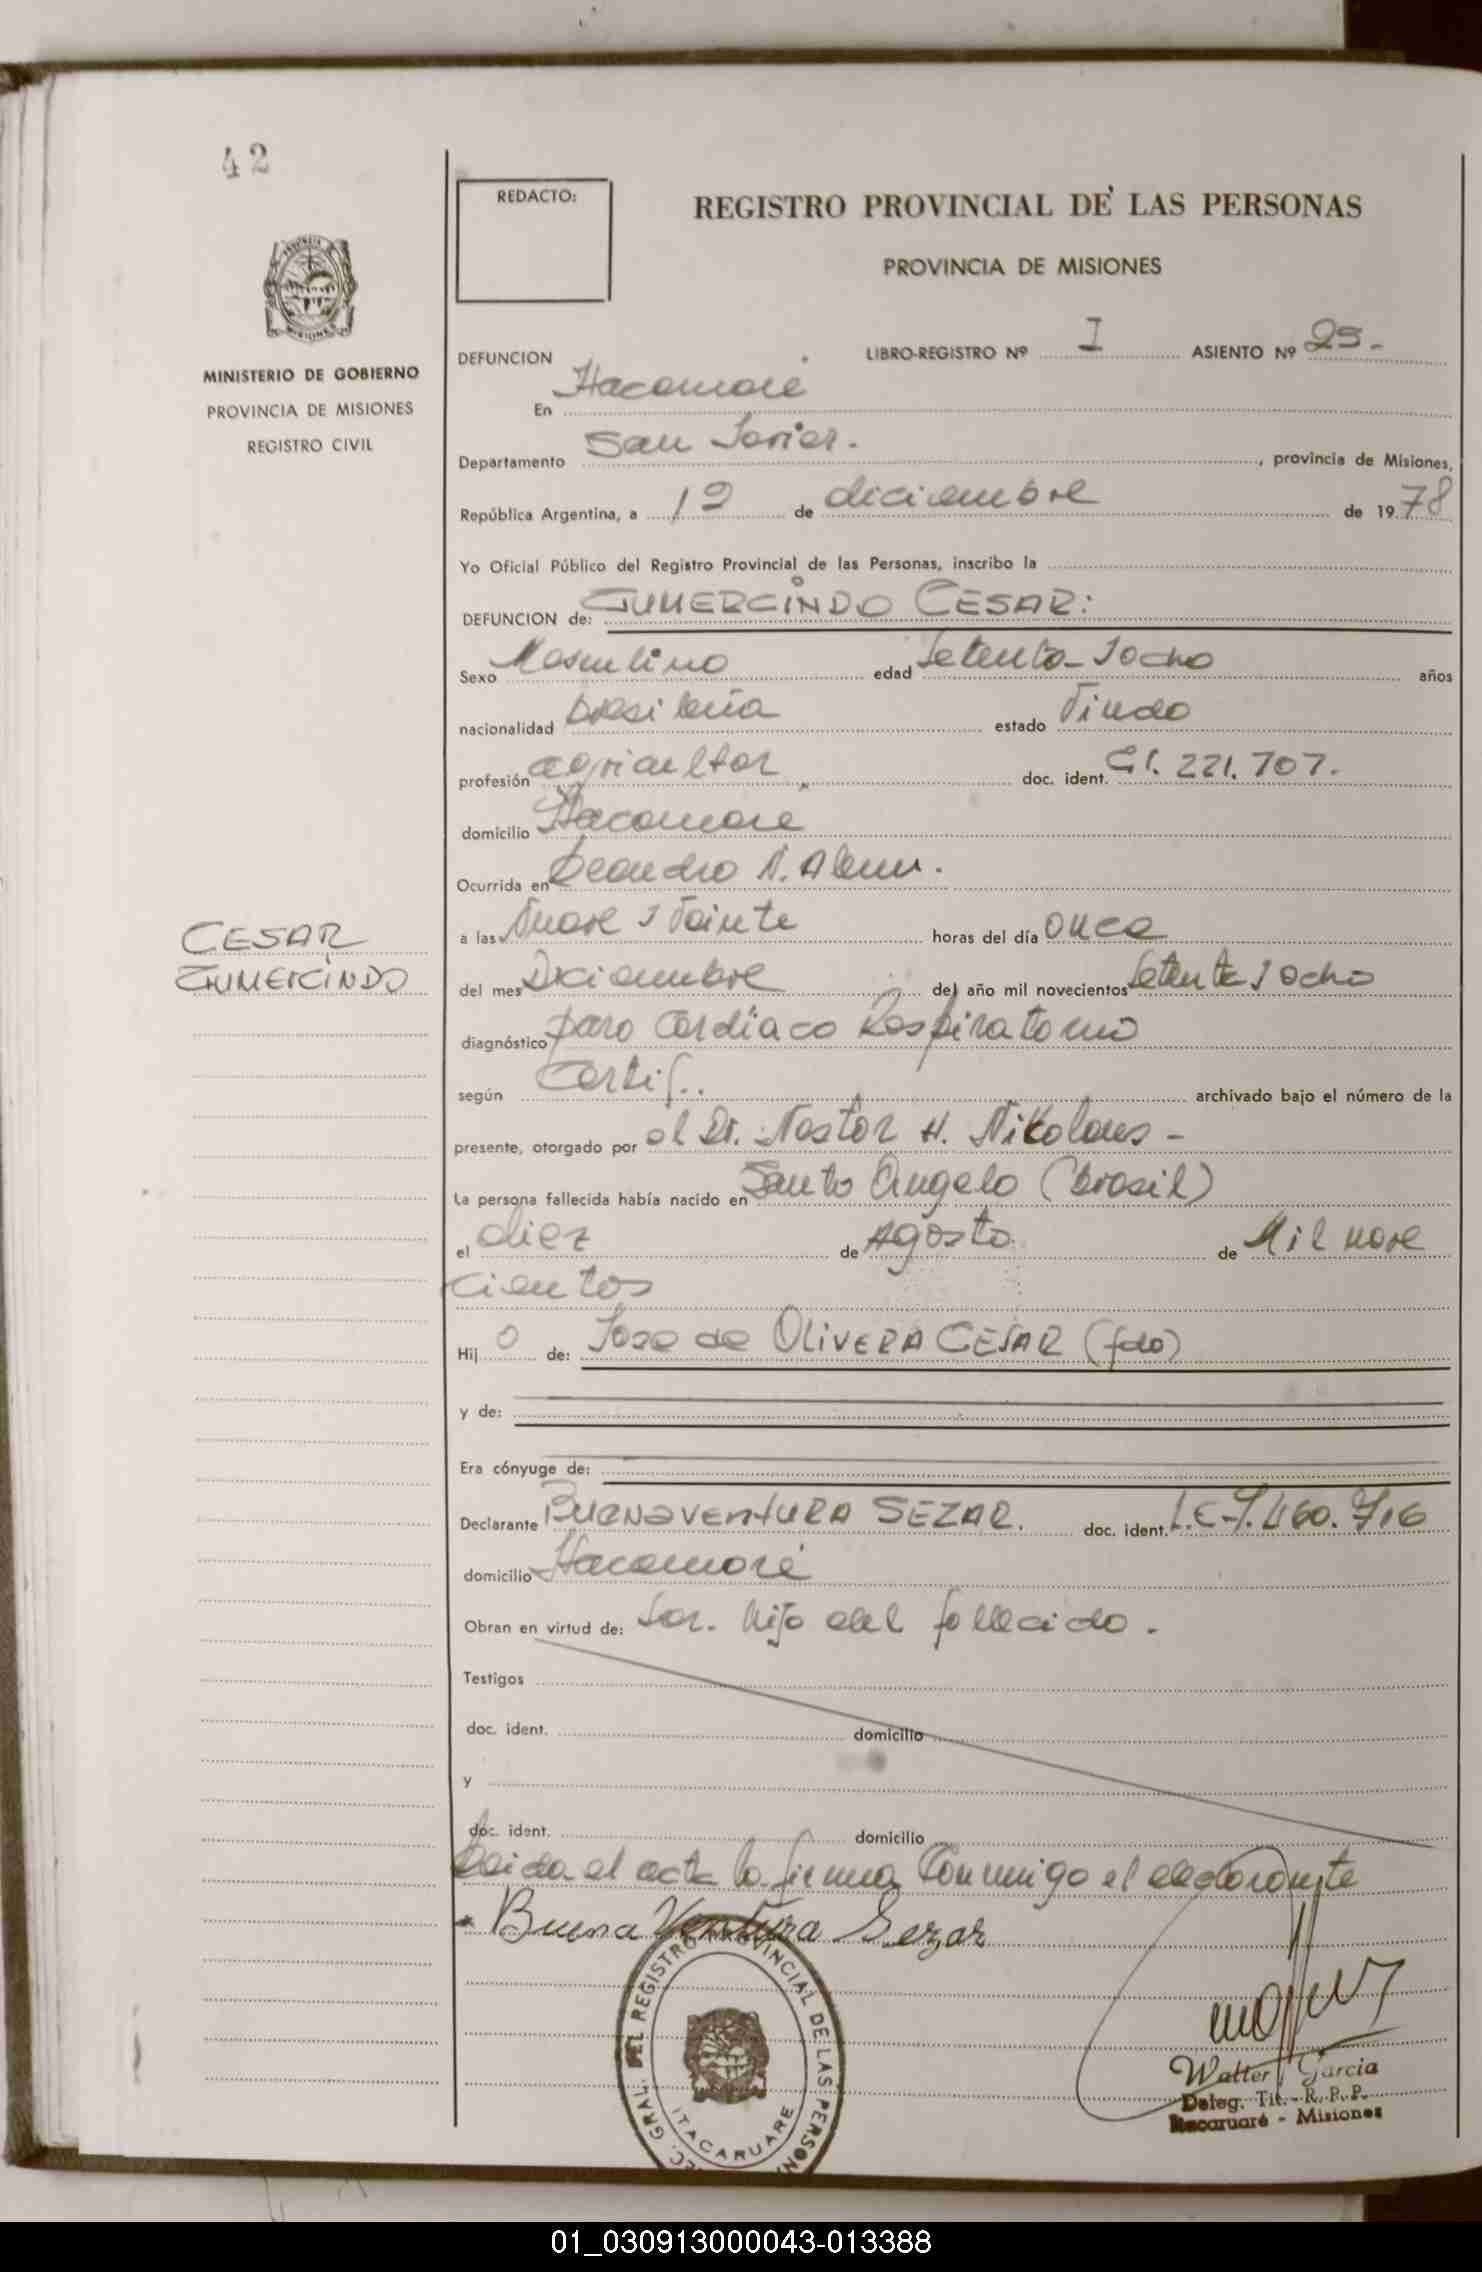 42
REDACTO:
REGISTRO PROVINCIAL DE LAS PERSONAS
PROVINCIA DE MISIONES
MINISTERIO DE GOBIERNO
PROVINCIA DE MISIONES
REGISTRO CIVIL
DEFUNCION LIBRO-REGISTRO Nº I ASIENTO Nº 25.-
En Itacaruaré
Departamento San Javier. , provincia de Misiones,
República Argentina, a 12 de diciembre de 1978
Yo Oficial Público del Registro Provincial de las Personas, inscribo la
DEFUNCION de: GUMERCINDO CESAR:
Sexo Masculino edad Setenta y ocho años
nacionalidad brasileña estado Viudo
profesión agricultor doc. ident. C.I. 221.707.
domicilio Itacaruaré
Ocurrida en Leandro N. Alem.
a las Nueve y Veinte horas del día once
CESAR
GUMERCINDO
del mes Diciembre del año mil novecientos Setenta y ocho
diagnóstico paro Cardiaco Respiratorio
según Certif.. archivado bajo el número de la
presente, otorgado por el Dr. Nestor H. Nikolaus -
La persona fallecida había nacido en Santo Angelo (brasil)
el diez de Agosto de Mil nove
cientos
Hij o de: Jose de OLIVERA CESAR (fdo)
y de:
Era cónyuge de:
Declarante BUENAVENTURA SEZAR. doc. ident. L.E-7.460.716
domicilio Itacaruaré
Obran en virtud de: Ser. hijo del fallecido.
Testigos
doc. ident. domicilio
y
doc. ident. domicilio
Leida el acta la firma Conmigo el declarante
Buena Ventura Sezar
GRAL. DEL REGISTRO PROVINCIAL DE LAS PERSON
ITACARUARE
Walter Garcia
Deleg. Tit. - R. P. P.
Itacaruaré - Misiones
01_030913000043-013388